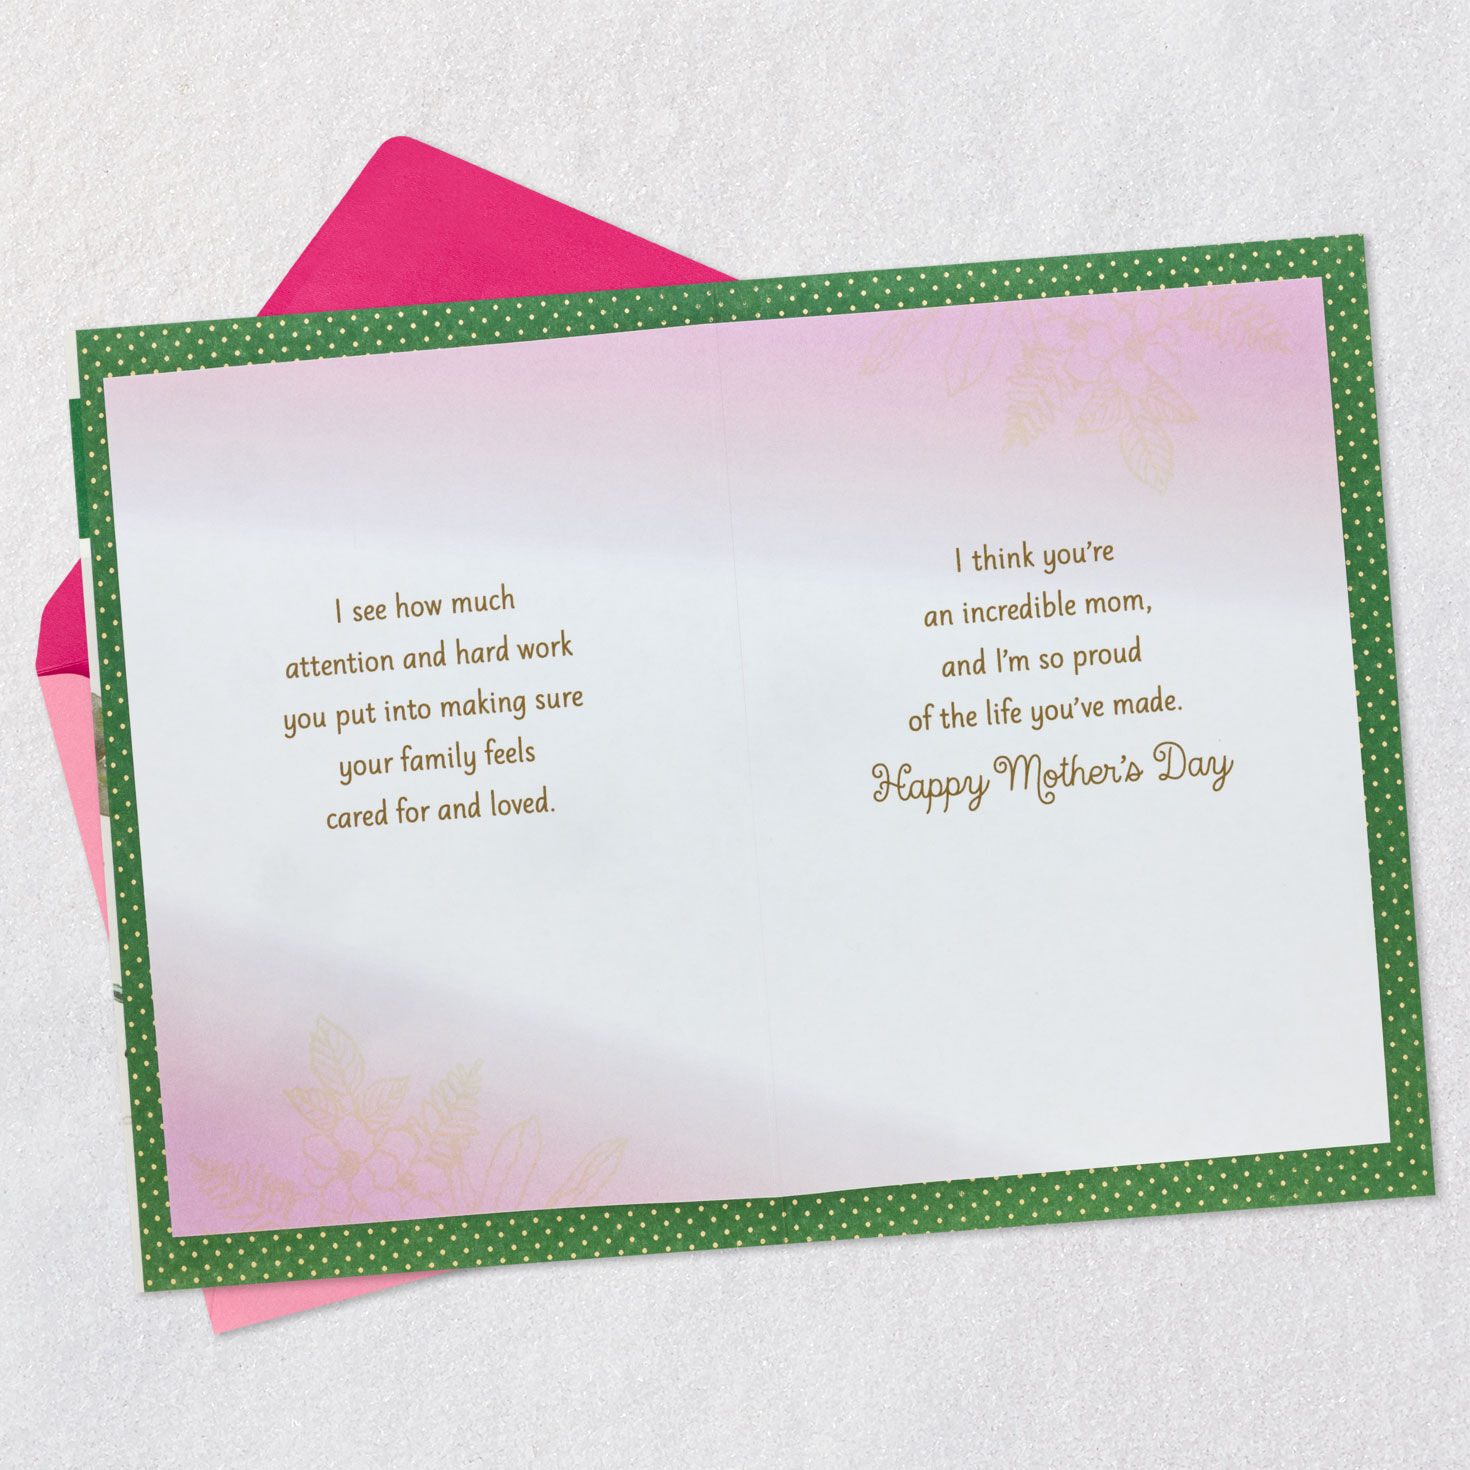 I see how much
attention and hard work
you put into making sure
your family feels
cared for and loved.
I think you're
an incredible mom,
and I'm so proud
of the life you've made.
Happy Mother's Day